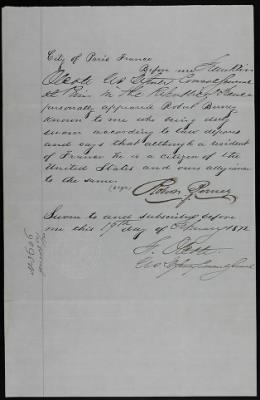 City of Paris France
Before me Franklin
Olcott U S Consul General
at Paris in the Republic of France
personally appeared Robert
known to me who being duly
sworn according to law deposes
and says that although a resident
of France he is a citizen of the
United States and owes allegiance
to the same.
(Sign)
Sworn to and subscribed before
me this 19th day of February 1872
F. Olcott